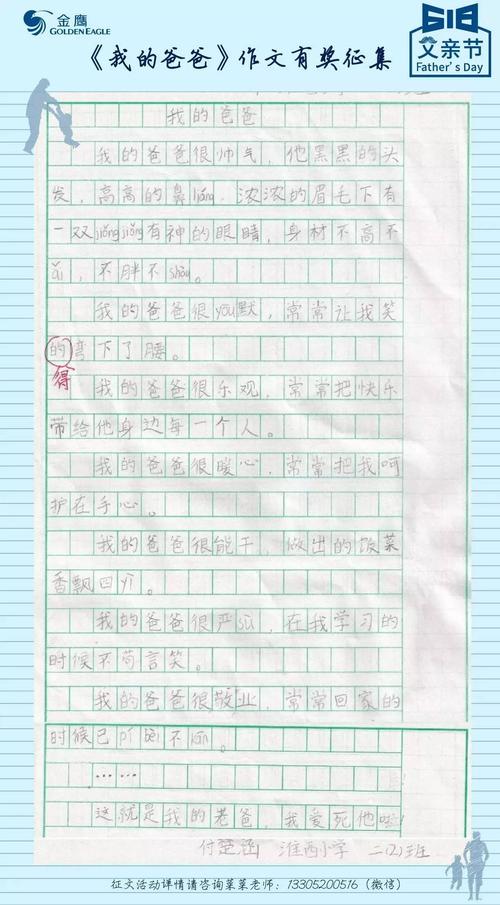 金鹰
GOLDEN EAGLE
618
父亲节
Father's Day
《我的爸爸》作文有奖征集
我的爸爸
我的爸爸很帅气，他黑黑的头
发，高高的鼻liáng，浓浓的眉毛下有
一双jiǒngjiǒng有神的眼睛，身材不高不
ǎi，不胖不shòu。
我的爸爸很yōu默，常常让我笑
的弯下了腰。
得
我的爸爸很乐观，常常把快乐
带给他身边每一个人。
我的爸爸很暖心，常常把我呵
护在手心。
我的爸爸很能干，做出的饭菜
香飘四介。
我的爸爸很严sù，在我学习的
时候不苟言笑。
我的爸爸很敬业，常常回家的
时候已pí bèi不kān。
……
这就是我的老爸，我爱死他啦
付楚涵 淮西小学 二(2)班
征文活动详情请咨询菜菜老师：13305200516（微信）